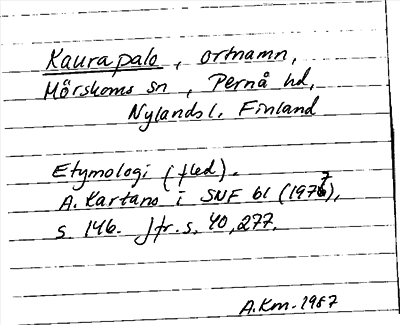 Kaurapalo, ortnamn,
Mörskoms sn, Pernå hd,
Nylands l. Finland
Etymologi (fled).
A. Kartano i SNF 61 (1977),
s. 146. Jfr. s. 40, 277.
A.Km. 1987